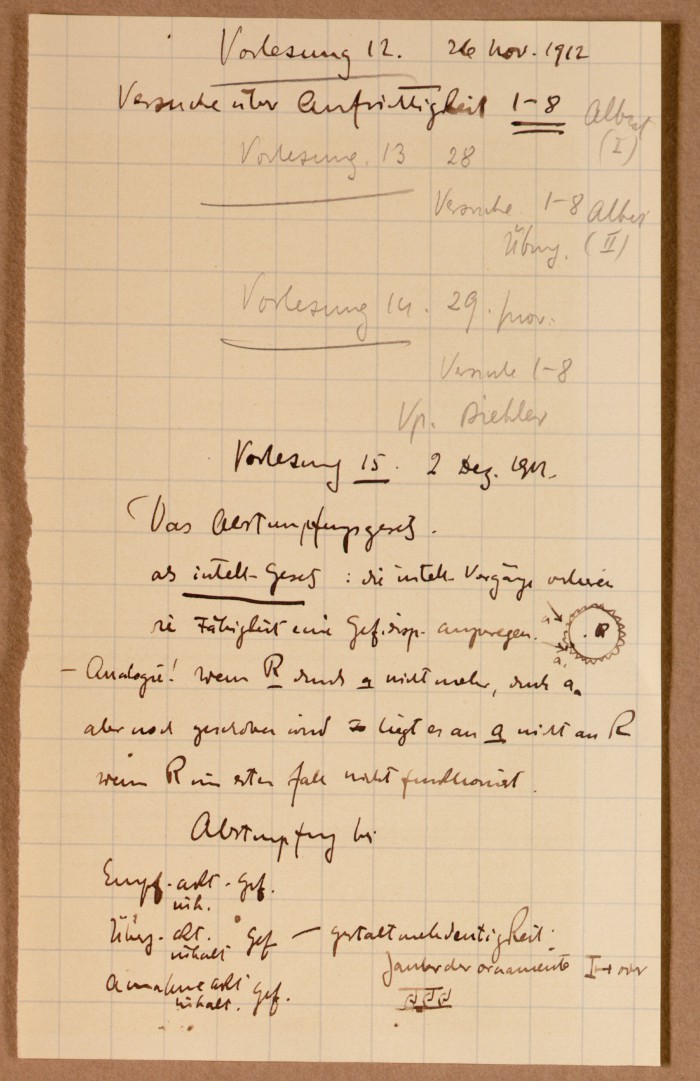 Vorlesung 12. 26 Nov. 1912
Versuche über Aufrichtigkeit 1-8
(I)
Vorlesung. 13 28
Versuche 1-8
Übung. (II)
Vorlesung 14. 29. Nov.
Versuche 1-8
Vp.
Vorlesung 15. 2 Dez. 1912.
Das Abstumpfungsgesetz.
als intell. Gesetz : die intell. Vorgänge verlieren
die Fähigkeit eine Gef.disp. anzuregen. a a, . R
– Analogie! Wenn R durch a nicht mehr, durch a,
aber noch geschoben wird so liegt es an a nicht an R
wenn R im ersten Fall nicht funktioniert.
Abstumpfung bei
Empf. akt. Gef.
inh.
Übzg. akt. Gef – Gestaltmehrdeutigkeit.
inhalt
Zauber der Ornamente oder
Annahme akt Gef.
inhalt.